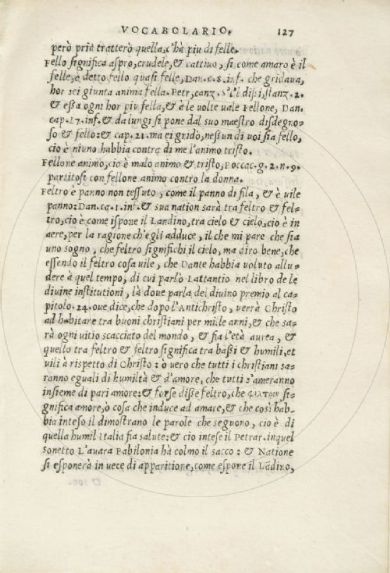 VOCABOLARIO. 127
però prima tratterò quella, c'ha piu di felle.
Fello significa aspro, crudele, & cattivo, si come amaro è il
felle, e detto fello quasi felle, Dan. c. 8. inf. che gridava,
hor sei giunta anima fella. Petr, canz. S'i'l dissi, stanz. 2.
& essa ogni hor piu fella, & è le volte uale Fellone, Dan.
cap. 17. inf. & da lungi si pone dal suo maestro disdegno-
so & fello: & cap. 21. ma ei gridò, nessun di uoi sia fello,
cio è niuno habbia contra di me l'animo tristo.
Fellone animo, cio è malo animo & tristo, Boccac. g. 2. n. 9.
partitosi con fellone animo contra la donna.
Feltro è panno non tessuto, come il panno di fila, & è uile
panno: Dan. ca. 1. inf. & sua nation sarà tra feltro & fel-
tro, cio è come ispone il Landino, tra cielo & cielo, cio è in
aere, per la ragione ch'egli adduce, il che mi pare che sia
uno sogno, che feltro significhi il cielo, ma diro bene, che
essendo il feltro cosa uile, che Dante habbia voluto allu-
dere à quel tempo, di cui parlò Lattantio nel libro de le
divine institutioni, là doue parla del divino premio al ca-
pitolo. 24. oue dice, che dopo l'Antichristo, verrà Christo
ad habitare tra buoni christiani per mille anni, & che sa-
rà ogni uitio scacciato del mondo, & fia l'età aurea, &
quello tra feltro & feltro significa tra bassi & humili, et
uili à rispetto di Christo: ò uero che tutti i christiani sa-
ranno eguali di humiltà & d'amore, che tutti s'ameranno
insieme di pari amore: & forse disse feltro, che si-
gnifica amore, ò cosa che induce ad amare, & che così hab-
bia inteso il dimostrano le parole che seguono, cio è di
quella humil Italia fia salute: & cio intese il Petrar. in quel
sonetto L'auara Babilonia hà colmo il sacco: & Natione
si esponerà in uece di apparitione, come espone il Lãdino,